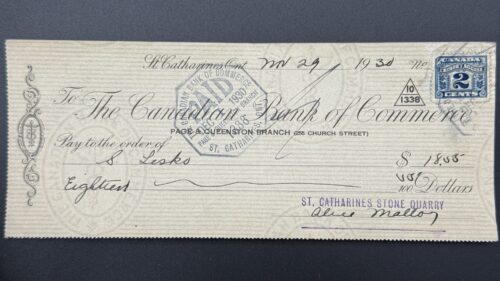 St. Catharines Ont. Nov 29 1930 No.
CANADA
2
CENTS
CANADIAN BANK OF COMMERCE
PAID
1930
ST. CATHARINES, ONT.
10
1338
To The Canadian Bank of Commerce
PAGE & QUEENSTON BRANCH (286 CHURCH STREET)
Pay to the order of
S Lesko $ 18.00
Eighteen 100 Dollars
ST. CATHARINES STONE QUARRY
Alice Malloy